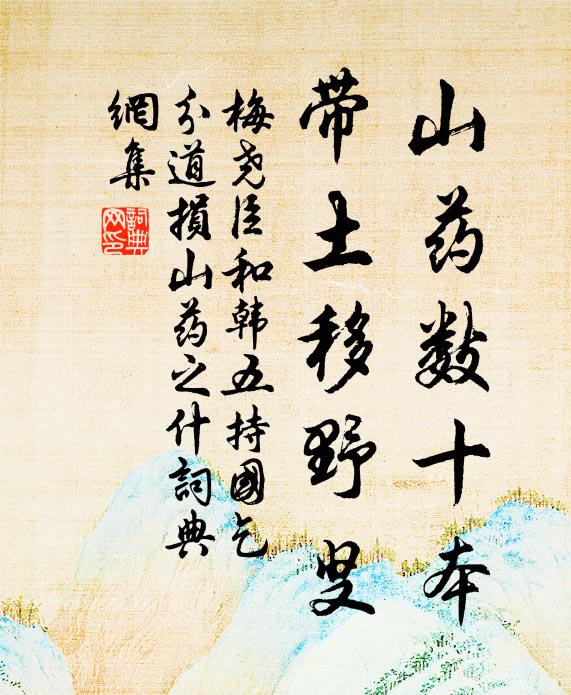 山药数十本
带土移野叟
梅尧臣和韩五持國乞
分道損山药之什詞典
網集
詞典网印